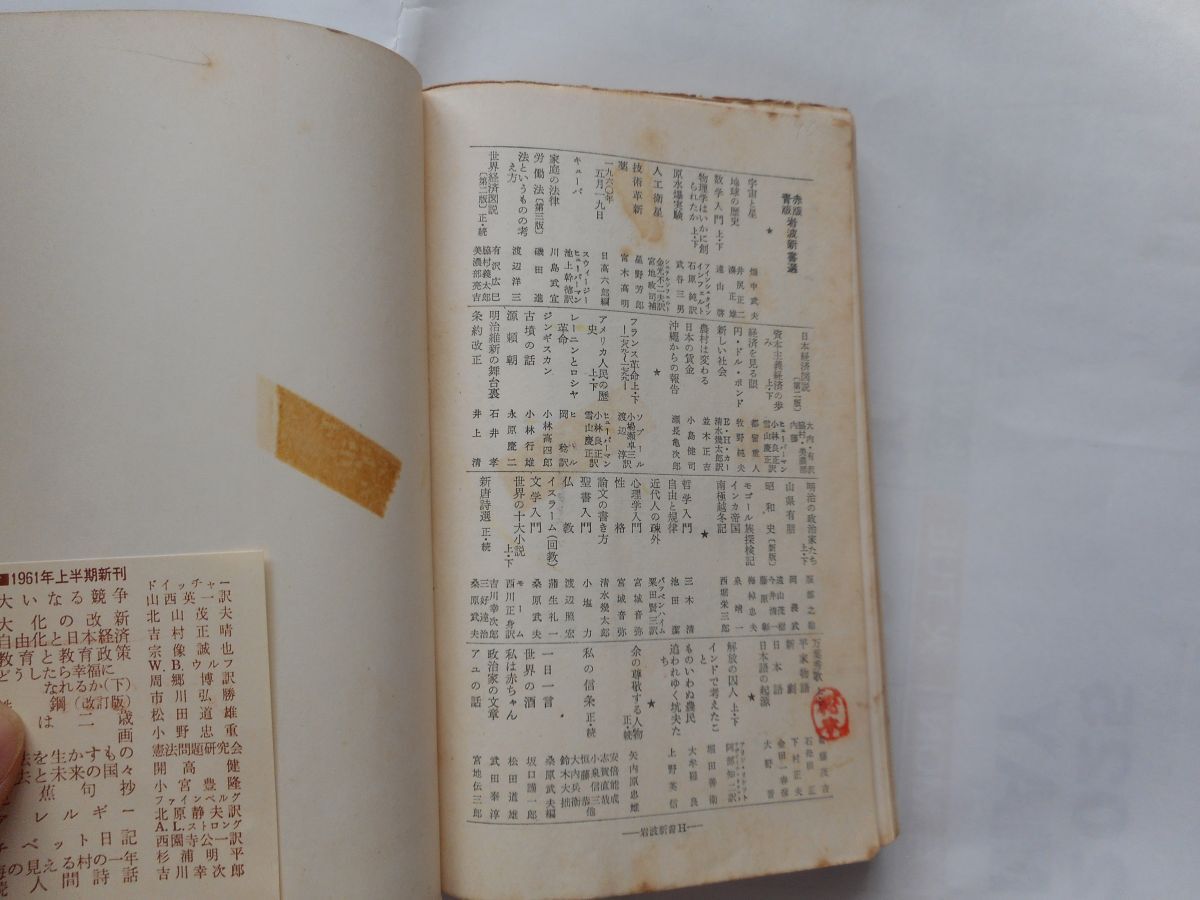 ■1961年上半期新刊
大いなる競争 ドイッチャー 山西英一訳
大化の改新 北山茂夫
自由化と日本経済 吉村正晴
教育と教育政策 宗像誠也
どうしたら幸福になれるか(下) W.B.ウルフ 周郷博訳
鋼(改訂版) 市川弘勝
は二歳 松田道雄
画 小野忠重
法を生かすもの 憲法問題研究会
去と未来の国々 開高健
蕉句抄 小宮豊隆
レルギー ファインベルグ 北原静夫訳
チベット日記 A.L.ストロング 西園寺公一訳
海の見える村の一年 杉浦明平
続人間詩話 吉川幸次郎
赤版 青版 岩波新書選
★
宇宙と星 畑中武夫
地球の歴史 井尻正二 湊正雄
数学入門 上・下 遠山啓
物理学はいかに創られたか 上・下 アインシュタイン インフェルト 石原純訳
原水爆実験 武谷三男
人工衛星 宮地政司補
技術革新 星野芳郎
薬 宮木高明
一九六〇年五月一九日 日高六郎編
キューバ スウィージー ヒューバーマン 池上幹徳訳
家庭の法律 川島武宜
労働法〔第三版〕 磯田進
法というものの考え方 渡辺洋三
世界経済図説〔第二版〕正・続 有沢広巳 脇村義太郎 美濃部亮吉
日本経済図説〔第二版〕 大内・有沢 脇村・美濃部 内藤
資本主義経済の歩み 上・下 ヒューバーマン 小林良正訳 雪山慶正訳
経済を見る眼 都留重人
円・ドル・ポンド 牧野純夫
新しい社会 E・H・カー 清水幾太郎訳
農村は変わる 並木正吉
日本の賃金 小島健司
沖縄からの報告 瀬長亀次郎
★
フランス革命 上・下 ソブール 小場瀬卓三訳 渡辺淳
アメリカ人民の歴史 上・下 ヒューバーマン 小林良正訳 雪山慶正訳
レーニンとロシヤ革命 ヒル 岡稔訳
ジンギスカン 小林高四郎
古墳の話 小林行雄
源頼朝 永原慶二
明治維新の舞台裏 石井孝
条約改正 井上清
明治の政治家たち 上・下 服部之総
山県有朋 岡義武
昭和史〔新版〕 遠山茂樹 今井清一 藤原彰
モゴール族探検記 梅棹忠夫
インカ帝国 泉靖一
南極越冬記 西堀栄三郎
★
哲学入門 三木清
自由と規律 池田潔
近代人の疎外 パッペンハイム 粟田賢三訳
心理学入門 宮城音弥
性格 宮城音弥
論文の書き方 清水幾太郎
聖書入門 小塩力
仏教 渡辺照宏
イスラーム(回教) 蒲生礼一
文学入門 桑原武夫
世界の十大小説 上・下 モーム 西川正身訳
新唐詩選 正・続 吉川幸次郎 三好達治 桑原武夫
万葉秀歌 斎藤茂吉
平家物語 石母田正
新劇 下村正夫
日本語 金田一春彦
日本語の起源 大野晋
★
解放の囚人 上・下 阿部知二訳
インドで考えたこと 堀田善衛
ものいわぬ農民 大牟羅良
追われゆく坑夫たち 上野英信
★
余の尊敬する人物 正・続 矢内原忠雄
私の信条 正・続 安倍能成 志賀直哉 小泉信三 恒藤恭 大内兵衛 鈴木大拙 他
一日一言 桑原武夫編
世界の酒 坂口謹一郎
私は赤ちゃん 松田道雄
政治家の文章 武田泰淳
アユの話 宮地伝三郎
—岩波新書H—